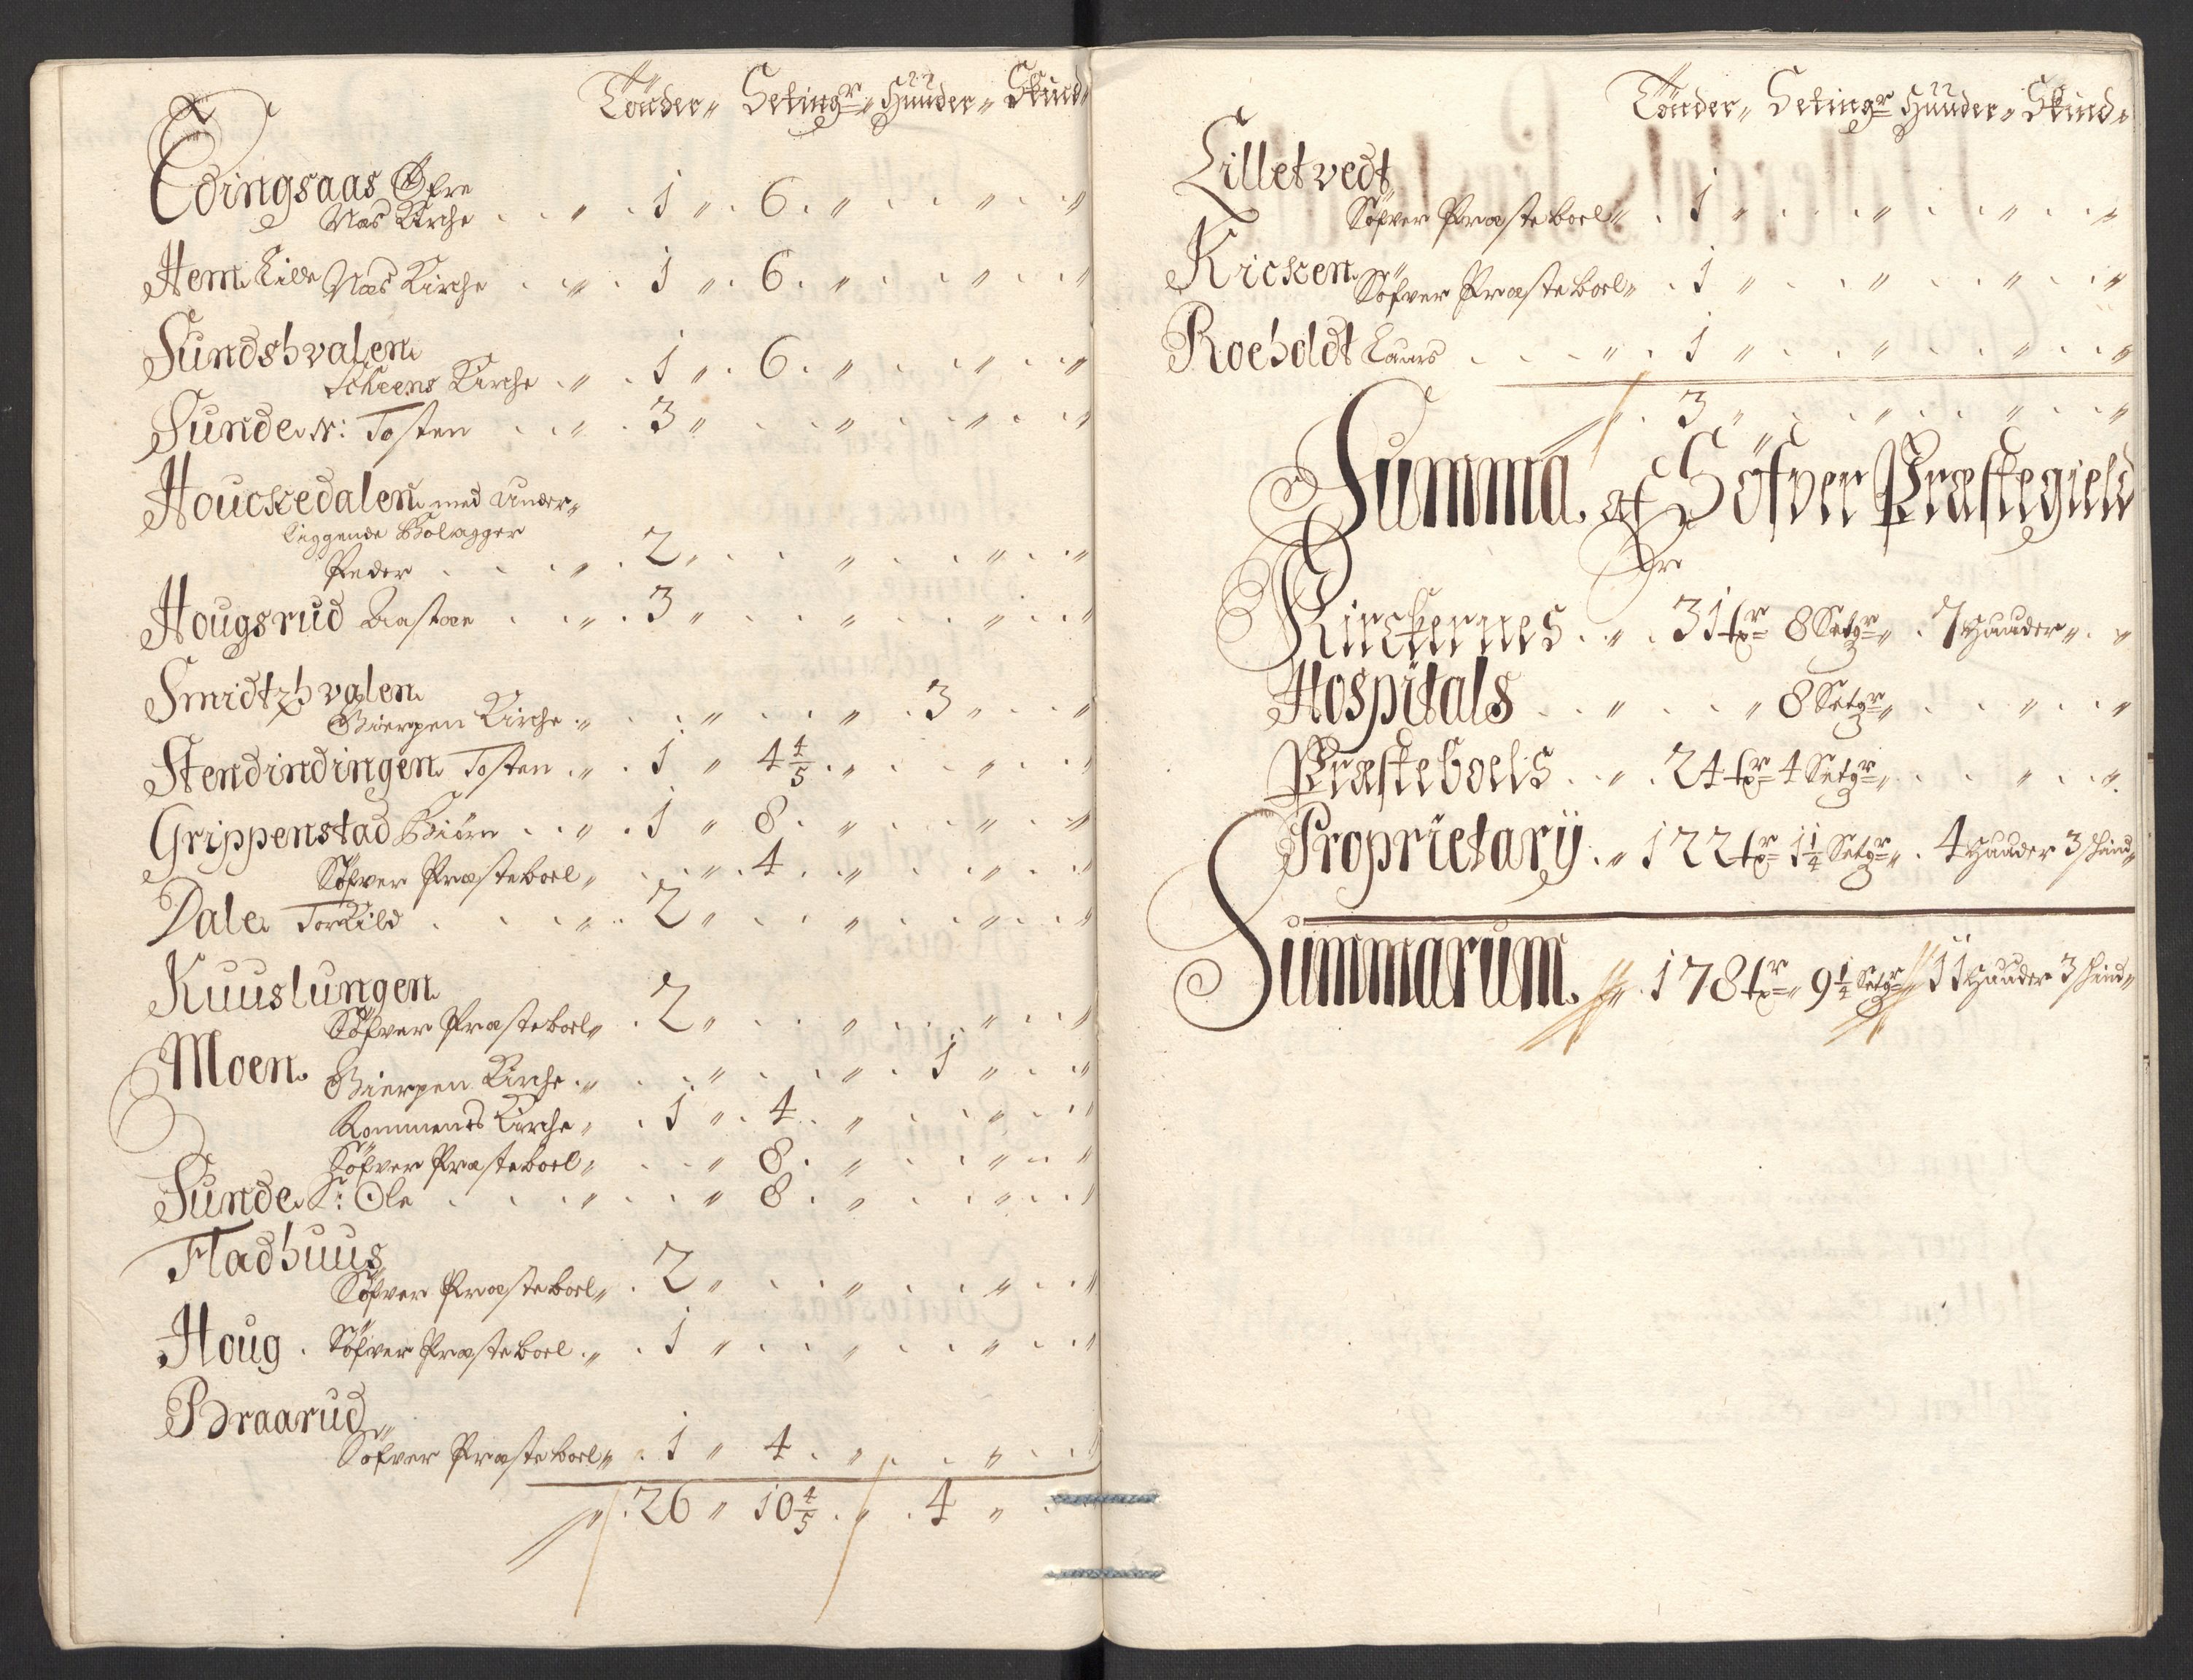 Tönder„ Setingr„ Huuder„ Skind„
Edingsaas Øfre
Næs Kirche . . „ . 1 „ . 6 . „ . . „ . . „
Hem Lille Næs Kirche . . „ . 1 „ . 6 . „ . . „ . . „
Sundshvalen
Scheens Kirche . „ . 1 „ . 6 . „ . . „ . . „
Sunde N: Tosten . . „ . 3 „ . . „ . . „ . . „
Houckedalen med Under„
liggende Bölagger
Peder . . . „ . 2 „ . . „ . . „ . . „
Hougsrud Aastæn . . „ . 3 „ . . „ . . „ . . „
Smidtzhvalen
Gierpen Kirche . „ . . „ . . „ . 3 „ . . „
Stendindingen Tosten . „ . 1 „ 4 4/5 . „ . . „ . . „
Grippenstad Biörn . . „ . 1 „ 8 . „ . . „ . . „
Söfver Præsteboel „ . . „ . 4 . „ . . „ . . „
Dale Torkild . . . „ . 2 „ . . „ . . „ . . „
Kuuslungen
Söfver Præsteboel„ . 2 „ . . „ . . „ . . „
Moen. Gierpen Kirche . „ . . „ . . „ . 1 „ . . „
Rommenes Kirche „ . 1 „ . 4 . „ . . „ . . „
Söfver Præsteboel „ . . „ 8 . „ . . „ . . „
Sunde S: Ole . . . „ . . „ 8 . „ . . „ . . „
Fladhuus
Söfver Præsteboel„ . 2 „ . . „ . . „ . . „
Houg . Söfver Præsteboel . „ . 1 „ . . „ . . „ . . „
Braarud
Söfver Præsteboel„ . 1 „ 4 . „ . . „ . . „
„ . 26 „ 10 4/5 . „ . 4 „ .
Tönder„ Setingr Huuder„ Skind„
Lilletvedt
Söfver Præsteboel„ . 1 „ . . „ . . „ . . „
Kricken
Söfver Præsteboel„ . 1 „ . . „ . . „ . . „
Roeholdt Laurs . . . „ . 1 „ . . „ . . „ . . „
„ . 3 „ . . „ . . „ . . „
Summa. af Söfver Præstegield
Er
Kirckernes . „ . 31 tr 8 Setgr„ . 7 Huuder „ . „
Hospitals . . „ . . „ 8 Setgr„ . . „ . . „
Præsteboels . . „ . 24 tr 4 Setgr„ . . „ . . „
Proprietarij . „ 122 tr 1 1/4 Setgr„ . 4 Huuder 3 skind„
Summarum. „ . 178 tr„ 9 1/4 Setgr„ 11 Huuder 3 skind„